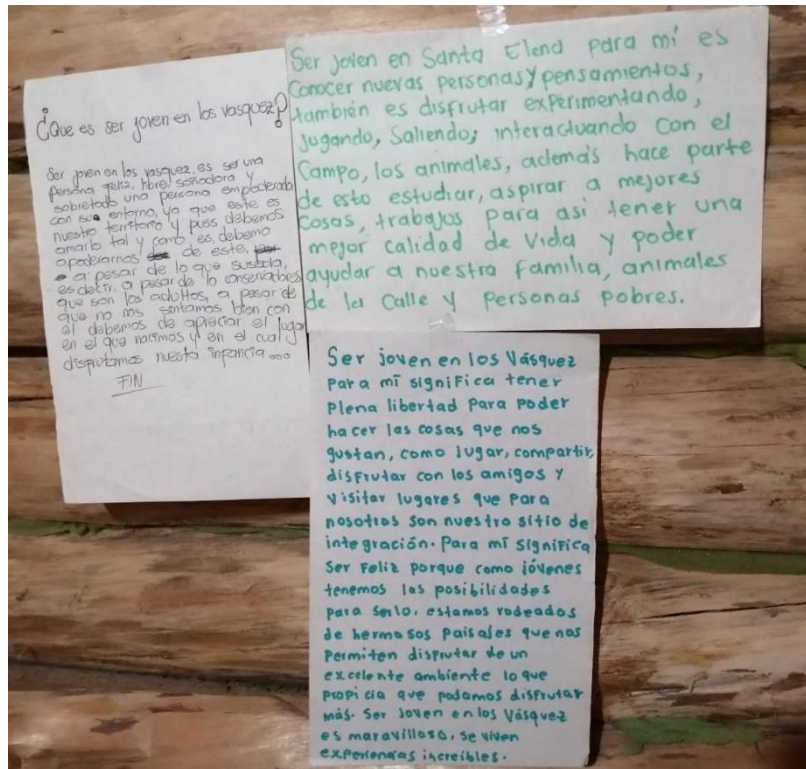 ¿Que es ser joven en los vasquez?
Ser joven en los vasquez, es ser una
persona feliz, libre, soñadora y
sobretodo una persona empoderada
con su entorno, ya que este es
nuestro territorio y pues debemos
amarlo tal y como es, debemo
apoderarnos de este,
a pesar de lo que suceda,
es decir, a pesar de lo conservadores
que son los adultos, a pesar de
que no nos sintamos bien con
el debemos de apreciar el lugar
en el que nacimos y en el cual
disfrutamos nuesta infancia...
FIN
Ser joven en Santa Elena para mí es
Conocer nuevas personas y pensamientos,
también es disfrutar experimentando,
jugando, Saliendo, interactuando con el
Campo, los animales, además hace parte
de esto estudiar, aspirar a mejores
cosas, trabajos para asi tener una
mejor calidad de vida y poder
ayudar a nuestra familia, animales
de la calle y personas pobres.
Ser joven en los Vásquez
para mí significa tener
plena libertad para poder
hacer las cosas que nos
gustan, como jugar, compartir,
disfrutar con los amigos y
visitar lugares que para
nosotros son nuestro sitio de
integración. Para mí significa
ser feliz porque como jóvenes
tenemos las posibilidades
para serlo, estamos rodeados
de hermosos paisajes que nos
permiten disfrutar de un
excelente ambiente lo que
propicia que podamos disfrutar
más. Ser joven en los Vásquez
es maravilloso, se viven
experiencias increíbles.